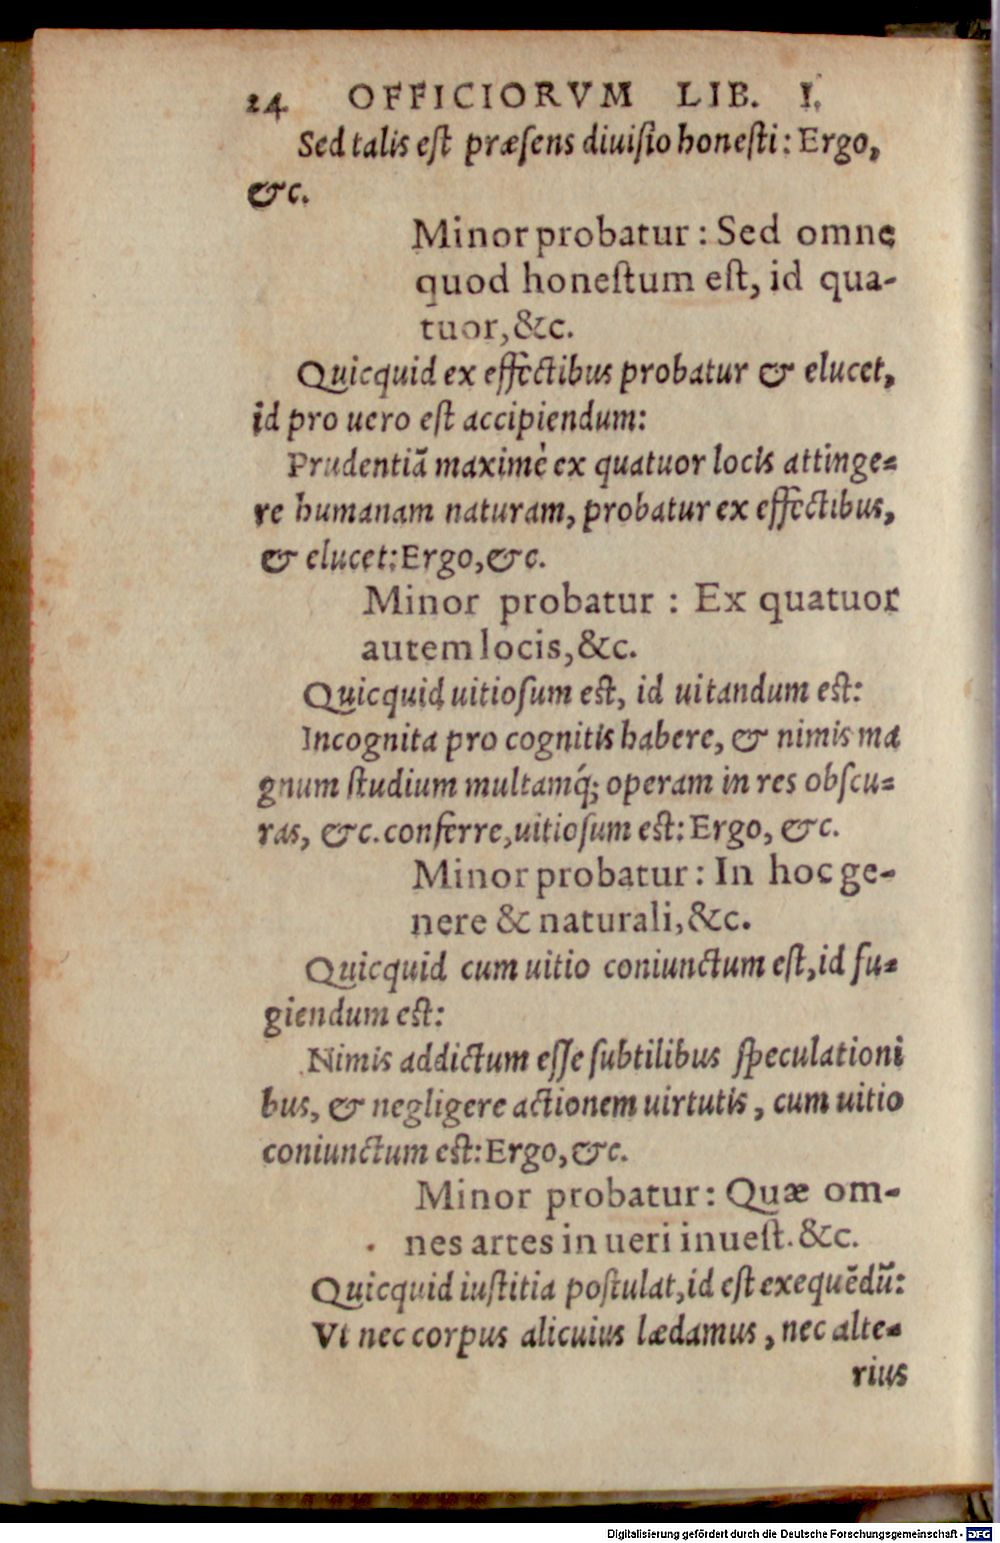 24 OFFICIORVM LIB. I.
Sed talis eſt præſens diuiſio honeſti: Ergo,
&c.
Minor probatur: Sed omne
quod honeſtum eſt, id qua-
tuor, &c.
Quicquid ex effectibus probatur & elucet,
id pro uero eſt accipiendum:
Prudentiā maximè ex quatuor locis attinge-
re humanam naturam, probatur ex effectibus,
& elucet: Ergo, &c.
Minor probatur: Ex quatuor
autem locis, &c.
Quicquid uitioſum eſt, id uitandum eſt:
Incognita pro cognitis habere, & nimis ma
gnum ſtudium multamq́; operam in res obſcu-
ras, &c. conferre, uitioſum eſt: Ergo, &c.
Minor probatur: In hoc ge-
nere & naturali, &c.
Quicquid cum uitio coniunctum eſt, id fu-
giendum eſt:
Nimis addictum eſſe ſubtilibus ſpeculationi
bus, & negligere actionem uirtutis, cum uitio
coniunctum eſt: Ergo, &c.
Minor probatur: Quæ om-
nes artes in ueri inueſt. &c.
Quicquid iuſtitia poſtulat, id eſt exequēdū:
Vt nec corpus alicuius lædamus, nec alte-
rius
Digitalisierung gefördert durch die Deutsche Forschungsgemeinschaft - DFG